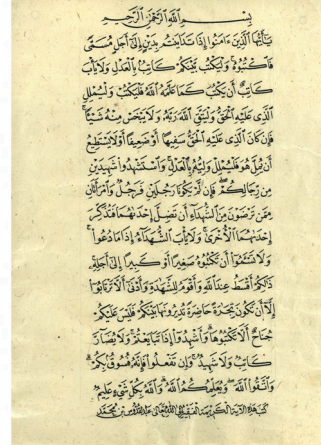 بِسْمِ اللَّهِ الرَّحْمَٰنِ الرَّحِيمِ
يَا أَيُّهَا الَّذِينَ ءَامَنُوا إِذَا تَدَايَنتُم بِدَيْنٍ إِلَىٰ أَجَلٍ مُّسَمًّى
فَاكْتُبُوهُ وَلْيَكْتُب بَّيْنَكُمْ كَاتِبٌ بِالْعَدْلِ وَلَا يَأْبَ
كَاتِبٌ أَن يَكْتُبَ كَمَا عَلَّمَهُ اللَّهُ فَلْيَكْتُبْ وَلْيُمْلِلِ
الَّذِي عَلَيْهِ الْحَقُّ وَلْيَتَّقِ اللَّهَ رَبَّهُ وَلَا يَبْخَسْ مِنْهُ شَيْئًا
فَإِن كَانَ الَّذِي عَلَيْهِ الْحَقُّ سَفِيهًا أَوْ ضَعِيفًا أَوْ لَا يَسْتَطِيعُ
أَن يُمِلَّ هُوَ فَلْيُمْلِلْ وَلِيُّهُ بِالْعَدْلِ وَاسْتَشْهِدُوا شَهِيدَيْنِ
مِن رِّجَالِكُمْ فَإِن لَّمْ يَكُونَا رَجُلَيْنِ فَرَجُلٌ وَامْرَأَتَانِ
مِمَّن تَرْضَوْنَ مِنَ الشُّهَدَاءِ أَن تَضِلَّ إِحْدَاهُمَا فَتُذَكِّرَ
إِحْدَاهُمَا الْأُخْرَىٰ وَلَا يَأْبَ الشُّهَدَاءُ إِذَا مَا دُعُوا
وَلَا تَسْأَمُوا أَن تَكْتُبُوهُ صَغِيرًا أَوْ كَبِيرًا إِلَىٰ أَجَلِهِ
ذَٰلِكُمْ أَقْسَطُ عِندَ اللَّهِ وَأَقْوَمُ لِلشَّهَادَةِ وَأَدْنَىٰ أَلَّا تَرْتَابُوا
إِلَّا أَن تَكُونَ تِجَارَةً حَاضِرَةً تُدِيرُونَهَا بَيْنَكُمْ فَلَيْسَ عَلَيْكُمْ
جُنَاحٌ أَلَّا تَكْتُبُوهَا وَأَشْهِدُوا إِذَا تَبَايَعْتُمْ وَلَا يُضَارَّ
كَاتِبٌ وَلَا شَهِيدٌ وَإِن تَفْعَلُوا فَإِنَّهُ فُسُوقٌ بِكُمْ
وَاتَّقُوا اللَّهَ وَيُعَلِّمُكُمُ اللَّهُ وَاللَّهُ بِكُلِّ شَيْءٍ عَلِيمٌ
كتب هذه الآية الكريمة الفقير إلى الله تعالى عبد القدوس بن محمد